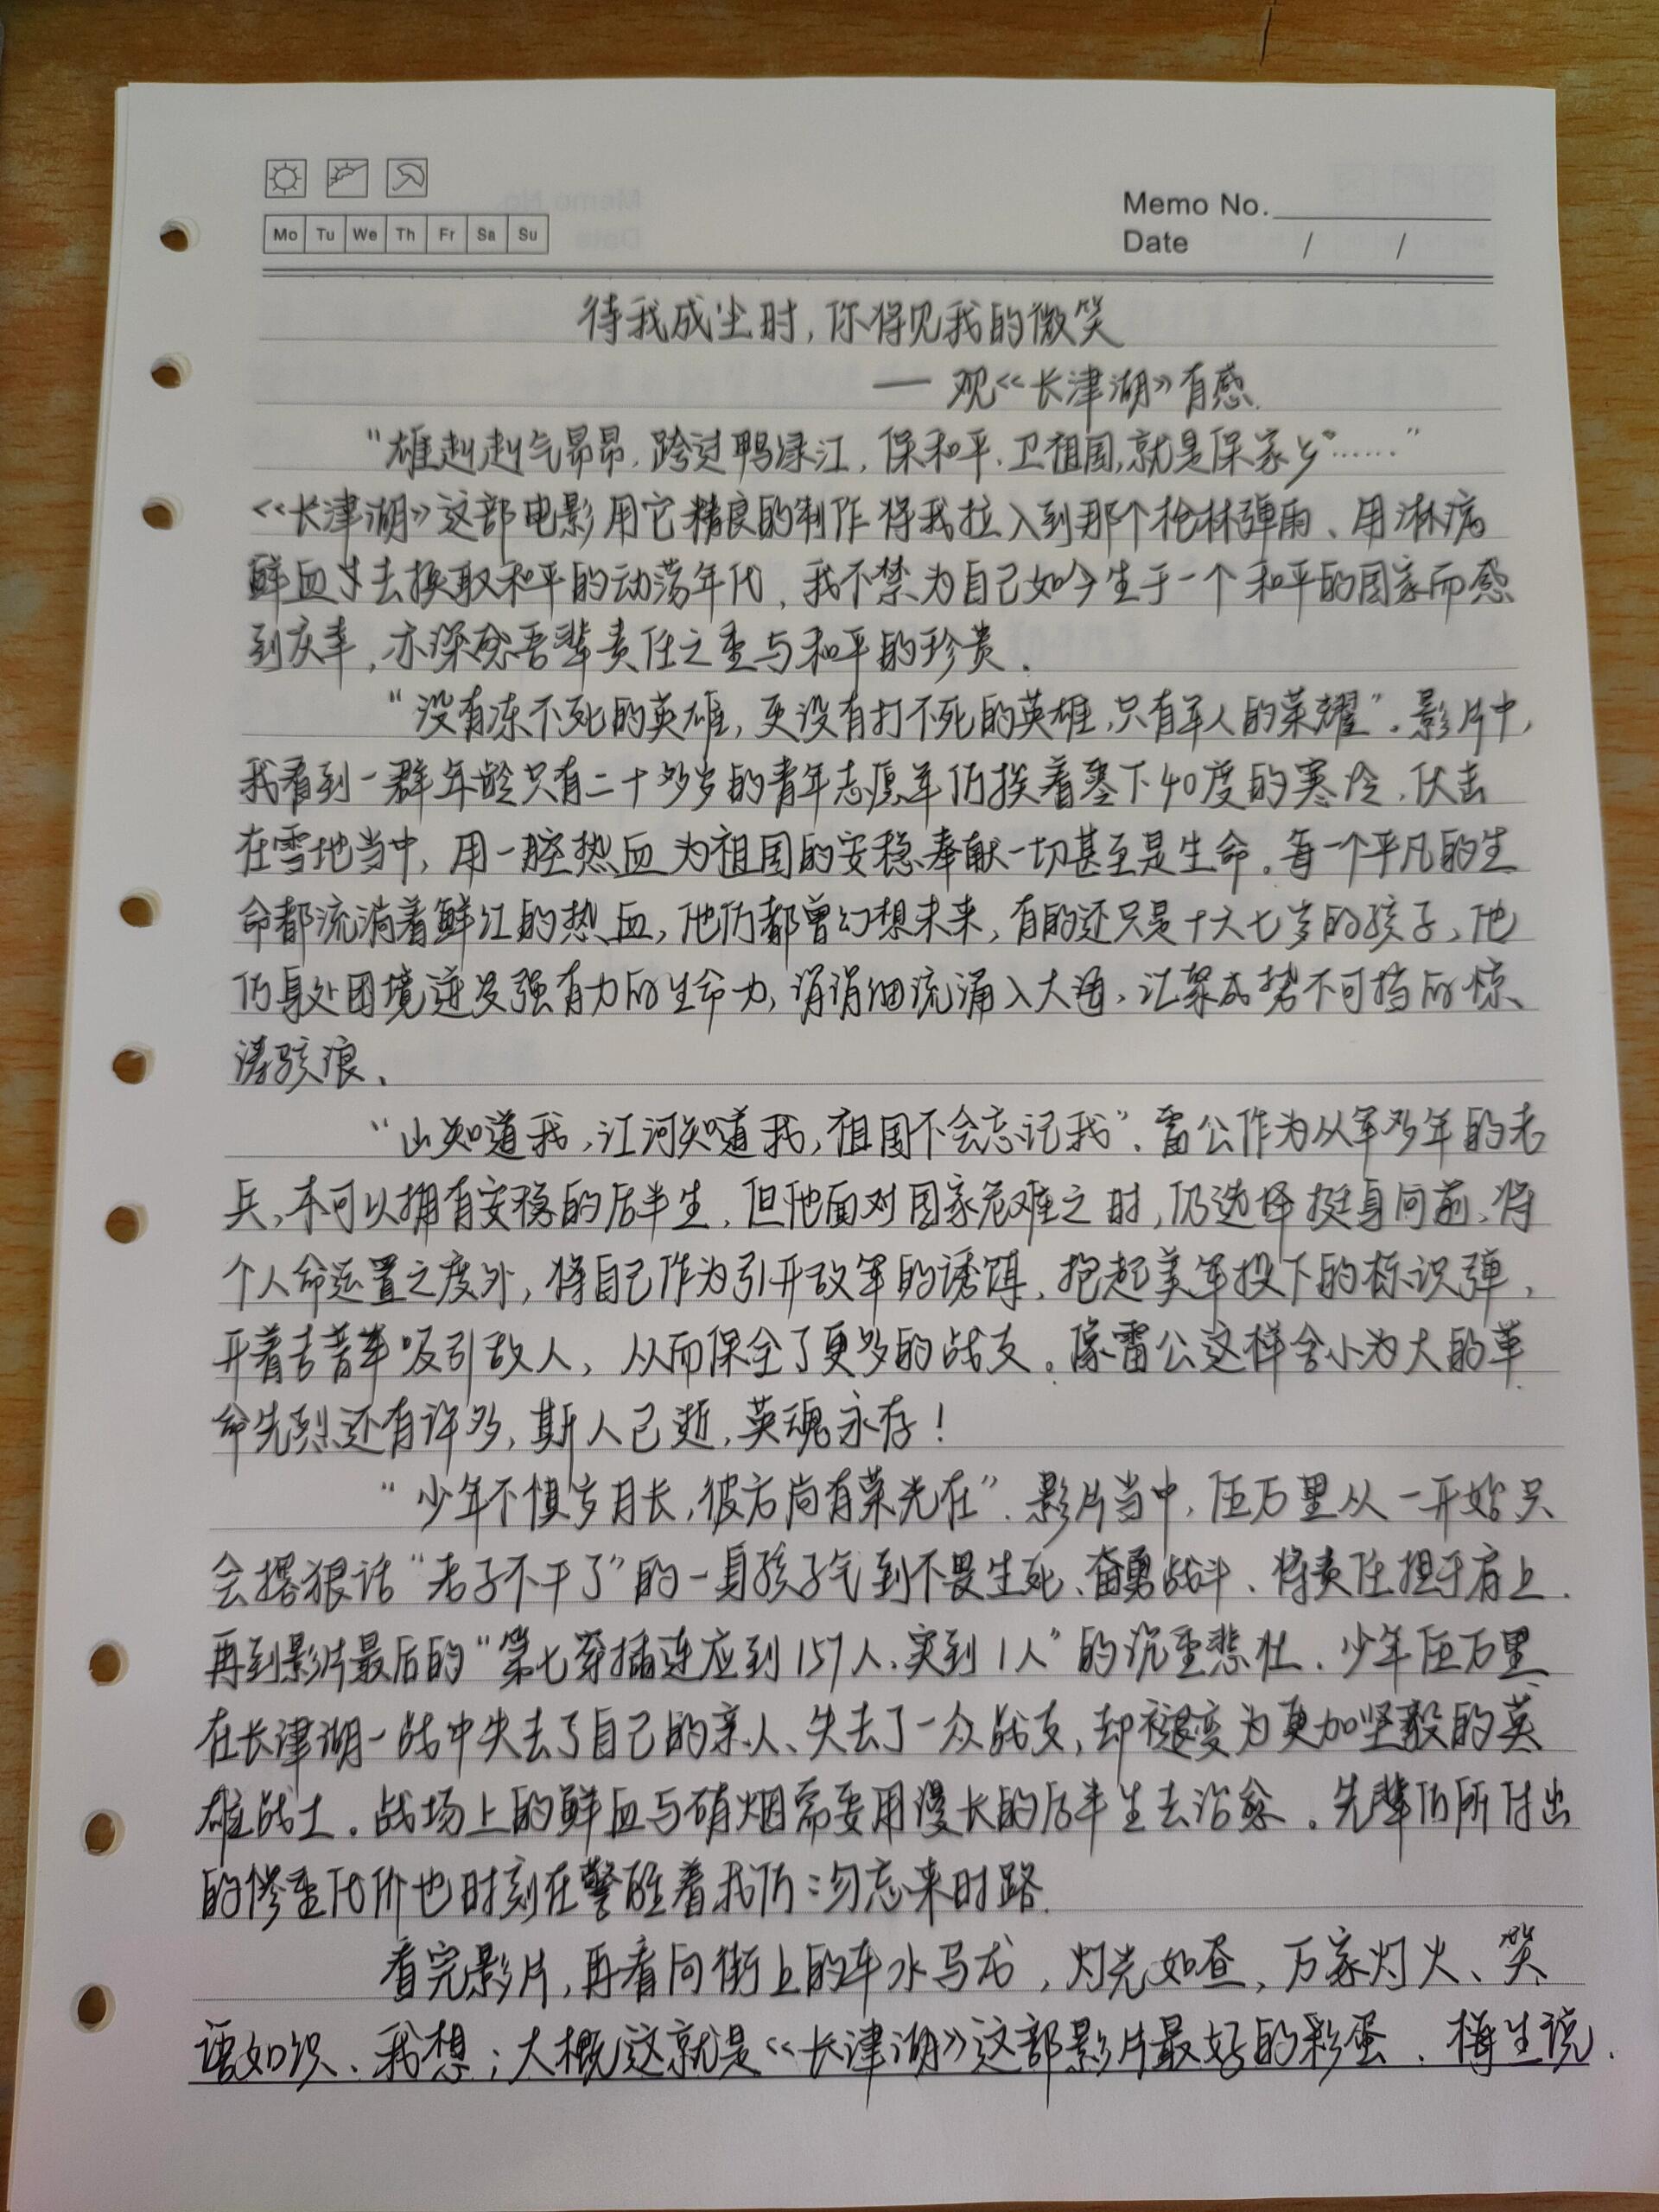 Mo Tu We Th Fr Sa Su
Memo No.
Date / /
待我成尘时,你得见我的微笑
— 观《长津湖》有感.
"雄赳赳气昂昂,跨过鸭绿江,保和平、卫祖国,就是保家乡……"
《长津湖》这部电影用它精良的制作将我拉入到那个枪林弹雨、用淋漓
鲜血才去换取和平的动荡年代,我不禁为自己如今生于一个和平的国家而感
到庆幸,亦深感吾辈责任之重与和平的珍贵.
"没有冻不死的英雄,更没有打不死的英雄,只有军人的荣耀".影片中,
我看到一群年龄只有二十多岁的青年志愿军们挨着零下40度的寒冷,伏击
在雪地当中,用一腔热血为祖国的安稳奉献一切甚至是生命.每一个平凡的生
命都流淌着鲜红的热血,他们都曾幻想未来,有的还只是十六七岁的孩子,他
们身处困境迸发强有力的生命力,涓涓细流涌入大海,汇聚成势不可挡的惊
涛骇浪.
"山知道我,江河知道我,祖国不会忘记我".雷公作为从军多年的老
兵,本可以拥有安稳的后半生,但他面对国家危难之时,仍选择挺身向前,将
个人命运置之度外,将自己作为引开敌军的诱饵,抱起美军投下的标识弹,
开着吉普车吸引敌人,从而保全了更多的战友.像雷公这样舍小为大的革
命先烈还有许多,斯人已逝,英魂永存!
"少年不惧岁月长,彼方尚有荣光在".影片当中,伍万里从一开始只
会撂狠话"老子不干了"的一身孩子气到不畏生死、奋勇战斗、将责任担于肩上.
再到影片最后的"第七穿插连应到157人,实到1人"的沉重悲壮.少年伍万里
在长津湖一战中失去了自己的亲人、失去了一众战友,却褪变为更加坚毅的英
雄战士.战场上的鲜血与硝烟需要用漫长的后半生去治愈.先辈们所付出
的惨重代价也时刻在警醒着我们:勿忘来时路.
看完影片,再看向街上的车水马龙,灯光如查,万家灯火、笑
语如织.我想;大概这就是《长津湖》这部影片最好的彩蛋.梅生说.